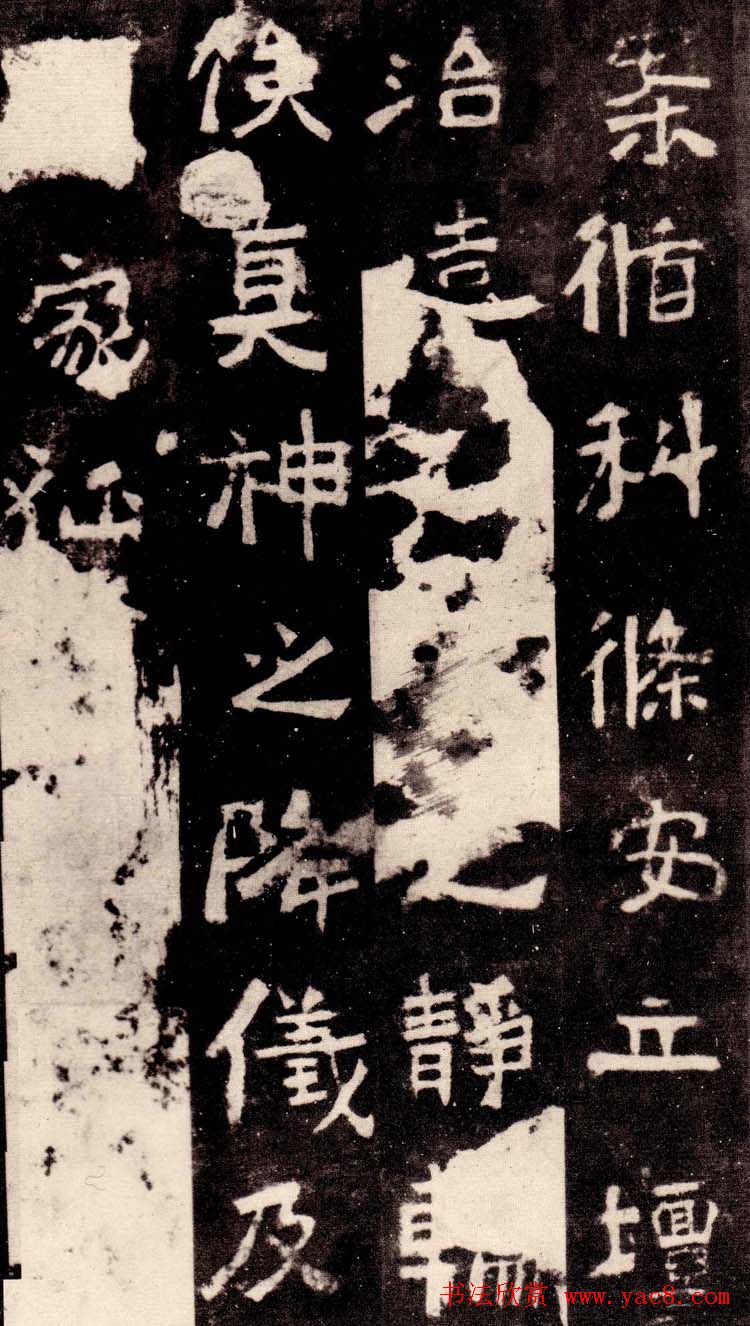 案循科條安立壇
治造之靜輪
俟真神之降儀及
家征
书法欣赏 www.yac8.com